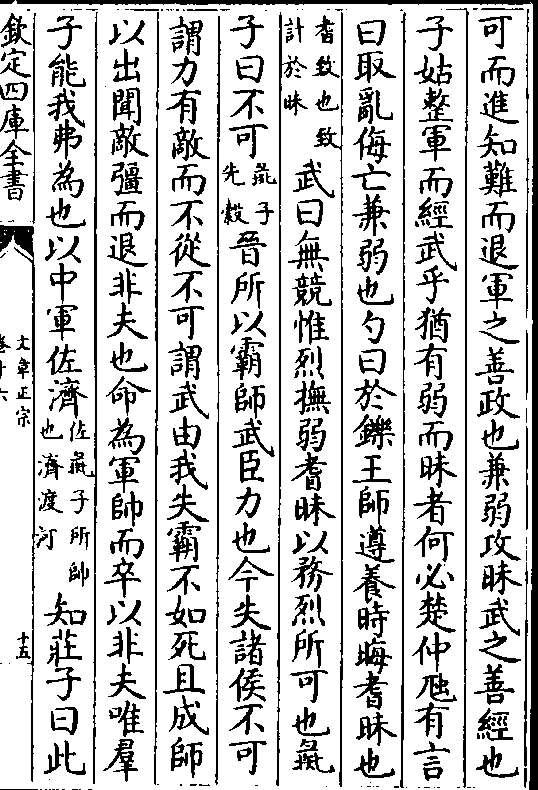 可而進知難而退軍之善政也兼弱攻昧武之善經也
子姑整軍而經武乎猶有弱而昧者何必楚仲虺有言
曰取亂侮亡兼弱也汋曰於鑠王師遵養時晦耆昧也
耆致也致
計於昧
武曰無競惟烈撫弱耆昧以務烈所可也彘
子曰不可
彘子
先縠
晉所以霸師武臣力也今失諸侯不可
謂力有敵而不從不可謂武由我失霸不如死且成師
以出聞敵彊而退非夫也命為軍帥而卒以非夫唯羣
子能我弗為也以中軍佐濟
佐彘子所帥
也濟渡河
知莊子曰此
欽定四庫全書
文章正宗
卷十六
十五